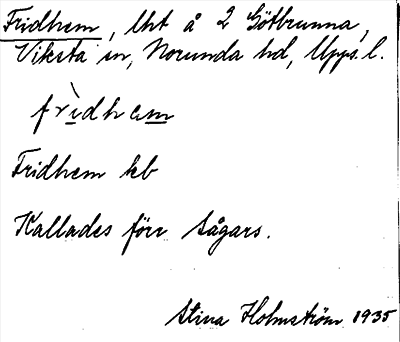 Fridhem, lht å 2 Götbrunna,
Viksta sn, Norunda hd, Upps. l.
frìdhem
Fridhem kb
Kallades förr Sågars.
Stina Holmström 1935